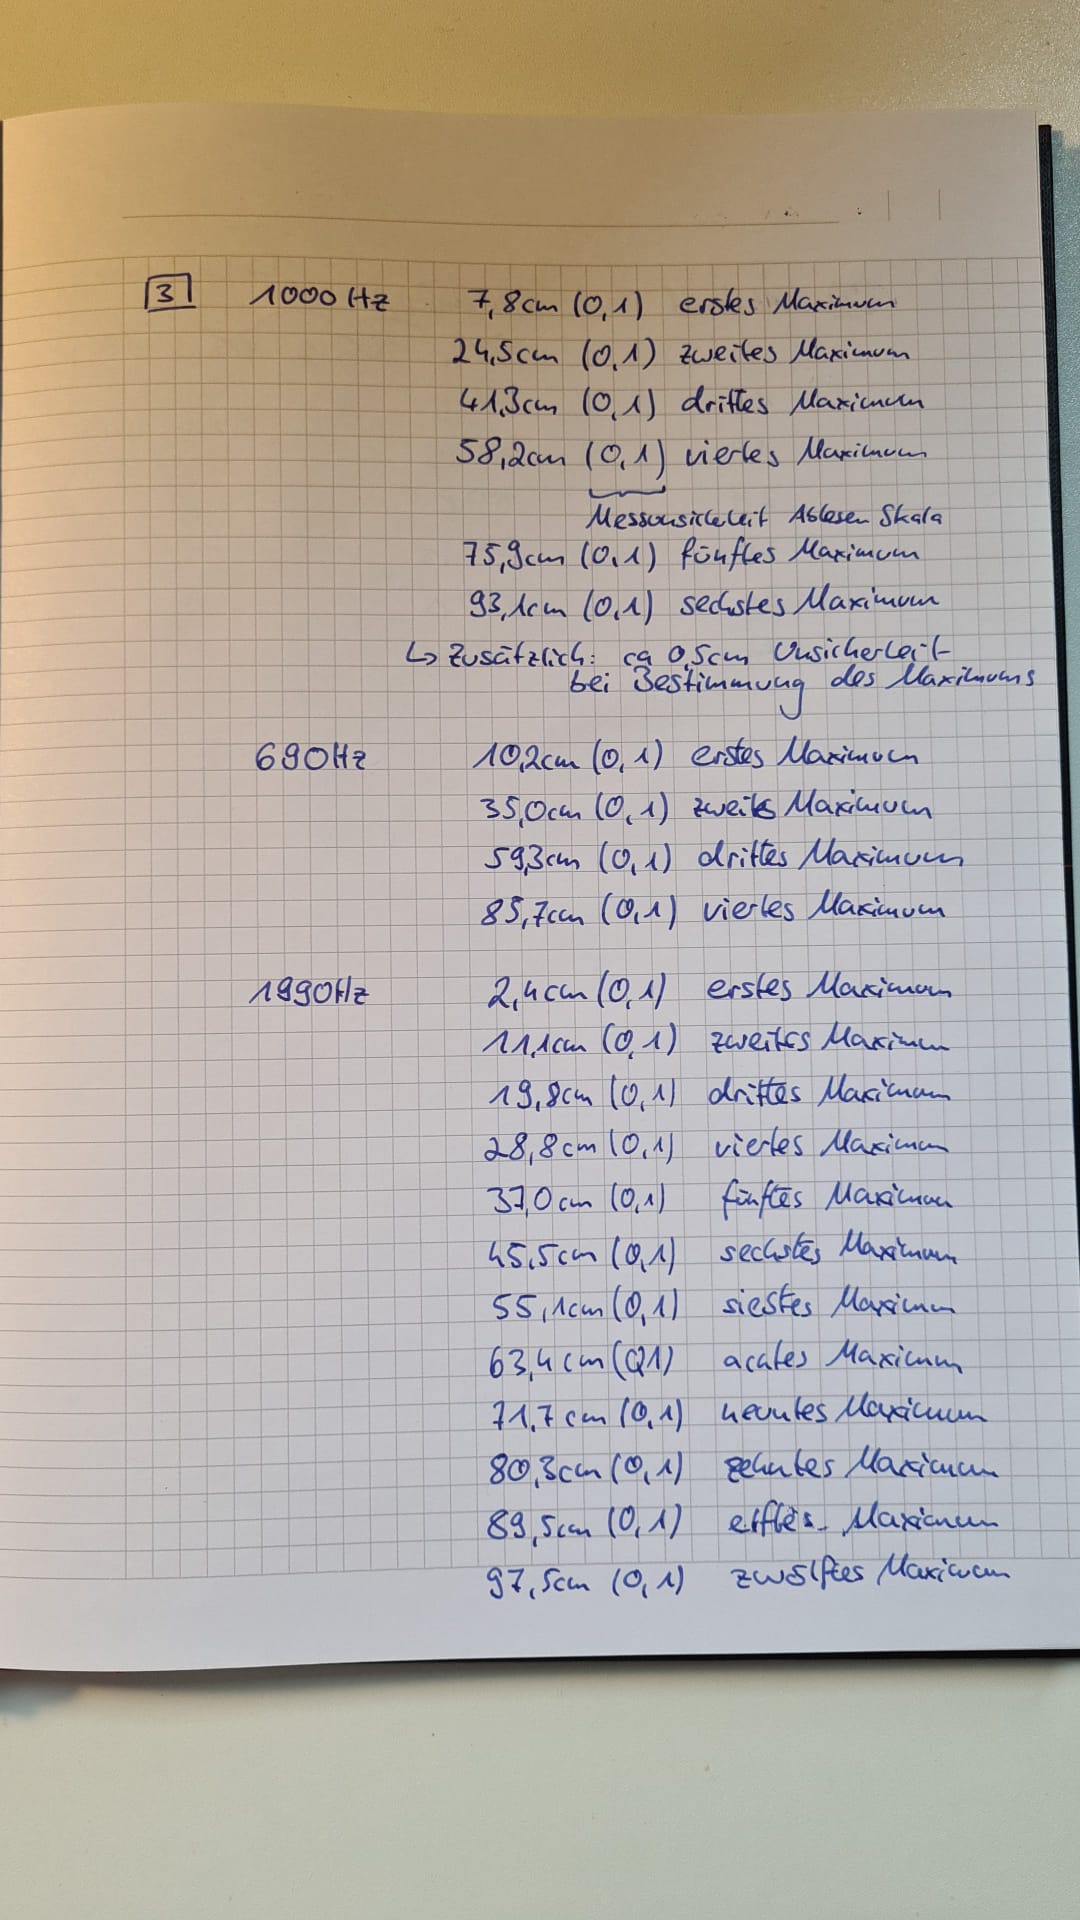 3 1000 Hz 7,8cm (0,1) erstes Maximum
24,5cm (0,1) zweites Maximum
41,3cm (0,1) drittes Maximum
58,2cm (0,1) viertes Maximum
Messunsicherheit Ablesen Skala
75,9cm (0,1) fünftes Maximum
93,1cm (0,1) sechstes Maximum
↳ Zusätzlich: ca 0,5cm Unsicherheit
bei Bestimmung des Maximums
690Hz 10,2cm (0,1) erstes Maximum
35,0cm (0,1) zweites Maximum
59,3cm (0,1) drittes Maximum
85,7cm (0,1) viertes Maximum
1990Hz 2,4cm (0,1) erstes Maximum
11,1cm (0,1) zweites Maximum
19,8cm (0,1) drittes Maximum
28,8cm (0,1) viertes Maximum
37,0cm (0,1) fünftes Maximum
45,5cm (0,1) sechstes Maximum
55,1cm (0,1) siebtes Maximum
63,4cm (0,1) achtes Maximum
71,7cm (0,1) neuntes Maximum
80,3cm (0,1) zehntes Maximum
89,5cm (0,1) elftes Maximum
97,5cm (0,1) zwölftes Maximum